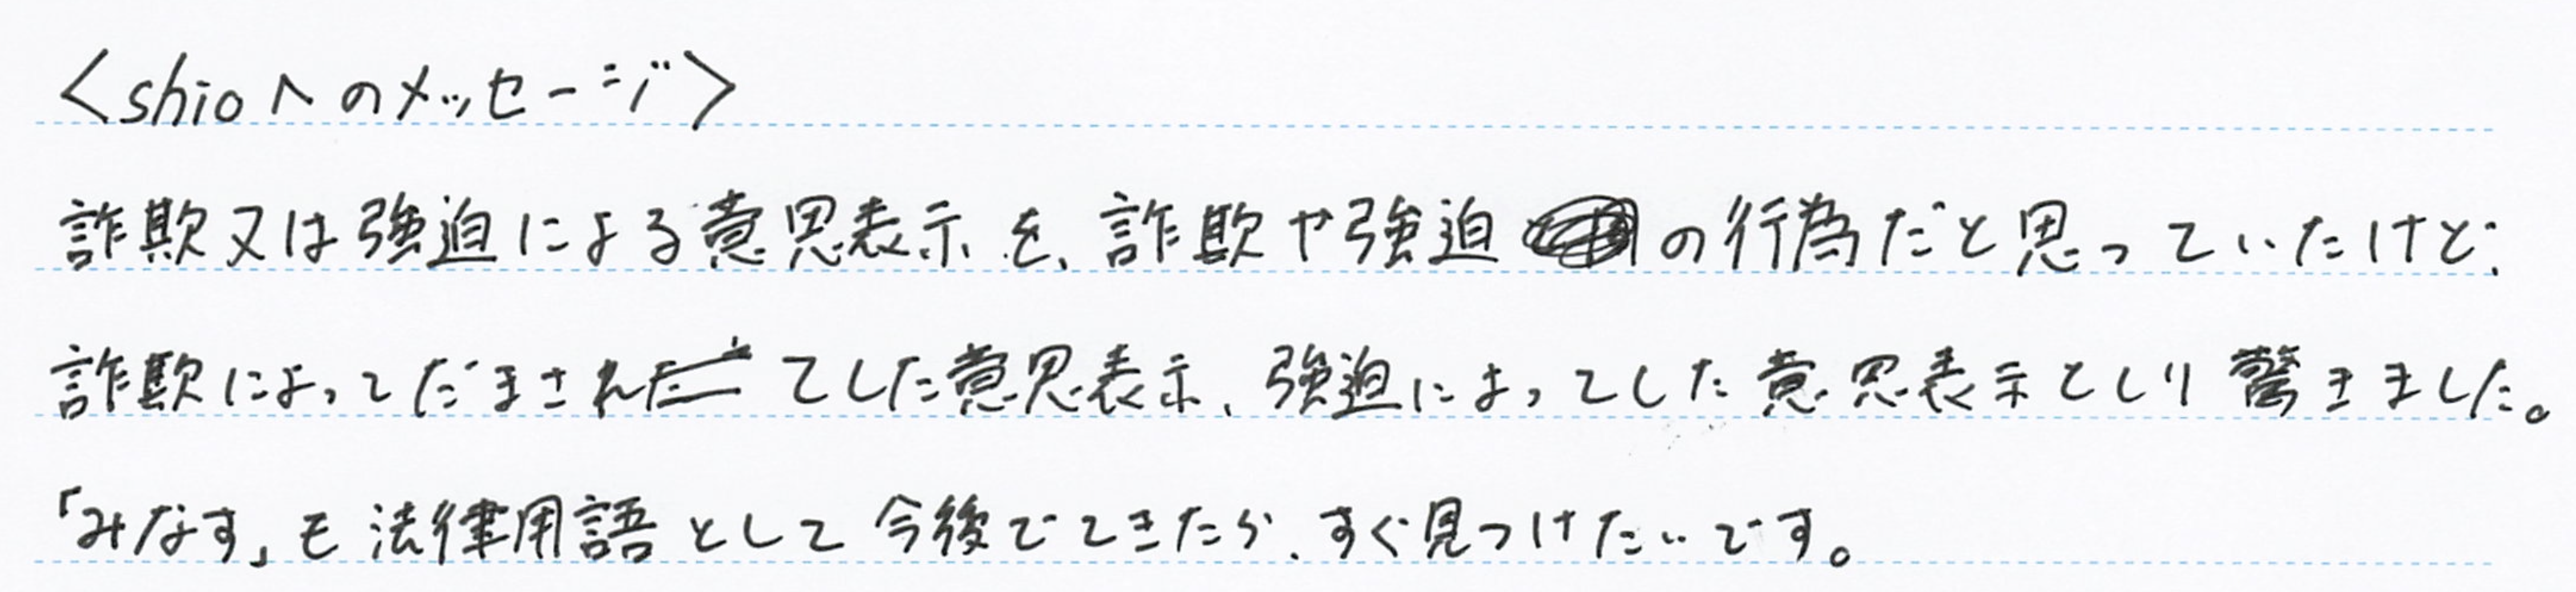 <shioへのメッセージ>
詐欺又は強迫による意思表示を、詐欺や強迫の行為だと思っていたけど、
詐欺によってだまされてした意思表示、強迫によってした意思表示としり驚きました。
「みなす」も法律用語として今後でてきたら、すぐ見つけたいです。